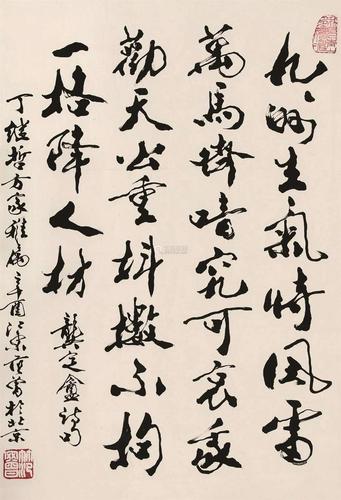 九洲生氣恃風雷
萬馬齊喑究可哀我
勸天公重抖擻不拘
一格降人材 龔定盦詩句
丁継哲方家雅屬辛酉江東范曾於北京